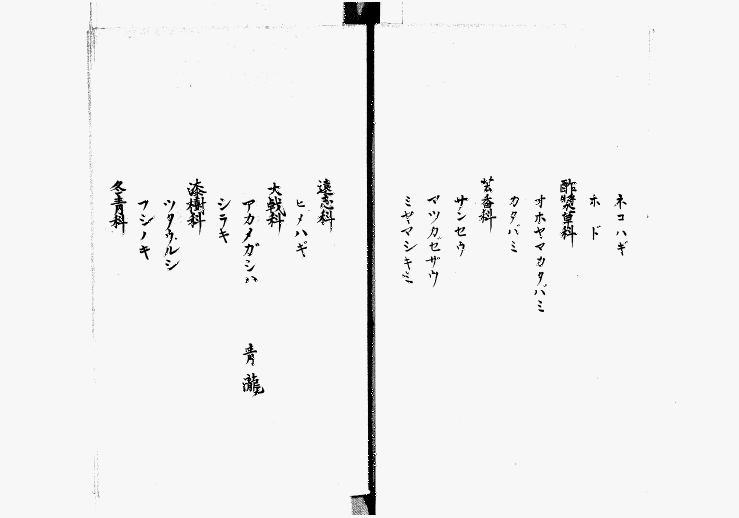 ネコハギ
ホド
酢漿草科
オホヤマカタバミ
カタバミ
芸香科
サンセウ
マツカゼサウ
ミヤマシキミ
遠志科
ヒメハギ
大戟科
アカメガシハ 青瀧
シラキ
漆樹科
ツタウルシ
フシノキ
冬青科